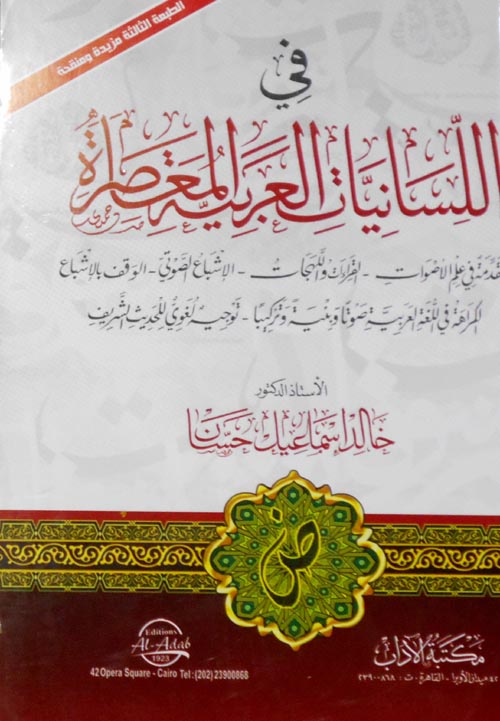 الطبعة الثالثة مزيدة ومنقحة
في
اللِّسَانِيَّاتِ العَرَبِيَّةِ المُعَاصِرَةِ
مقدمة في علم الأصوات - القراءات واللهجات - الإشباع الصوتي - الوقف بالإشباع
الكراهة في اللغة العربية صوتًا وبنيةً وتركيبًا - توجيه لغوي للحديث الشريف
الأستاذ الدكتور
خالد إسماعيل حسان
ض
Editions
Al-Adab
1923
42 Opera Square - Cairo Tel:(202) 23900868
مكتبة الآداب
٤٢ ميدان الأوبرا - القاهرة - ت: ٢٣٩٠٠٨٦٨